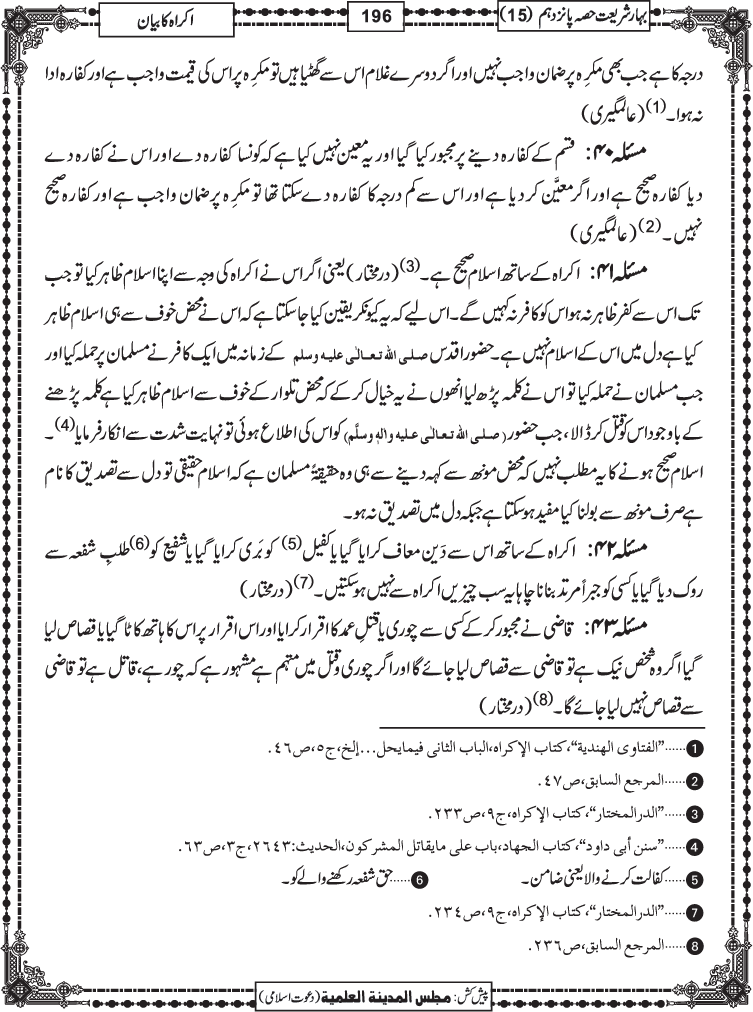 بہارِشریعت حصہ پانزدہم (15)
196
اکراہ کا بیان
درجہ کا ہے جب بھی مکرِہ پر ضمان واجب نہیں اور اگر دوسرے غلام اس سے گھٹیا ہیں تو مکرِہ پر اس کی قیمت واجب ہے اور کفارہ ادا
نہ ہوا۔(1) (عالمگیری)
مسئلہ ۴۰: قسم کے کفارہ دینے پر مجبور کیا گیا اور یہ معین نہیں کیا ہے کہ کونسا کفارہ دے اور اس نے کفارہ دے
دیا کفارہ صحیح ہے اور اگر معیَّن کر دیا ہے اور اس سے کم درجہ کا کفارہ دے سکتا تھا تو مکرِہ پر ضمان واجب ہے اور کفارہ صحیح
نہیں۔(2) (عالمگیری)
مسئلہ ۴۱: اکراہ کے ساتھ اسلام صحیح ہے۔(3) (درمختار) یعنی اگر اس نے اکراہ کی وجہ سے اپنا اسلام ظاہر کیا تو جب
تک اس سے کفر ظاہر نہ ہو اس کو کافر نہ کہیں گے۔ اس لیے کہ یہ کیونکر یقین کیا جاسکتا ہے کہ اس نے محض خوف سے ہی اسلام ظاہر
کیا ہے دل میں اس کے اسلام نہیں ہے۔ حضور اقدس صلی اللہ تعالٰی علیہ وسلم کے زمانہ میں ایک کافر نے مسلمان پر حملہ کیا اور
جب مسلمان نے حملہ کیا تو اس نے کلمہ پڑھ لیا انھوں نے یہ خیال کر کے کہ محض تلوار کے خوف سے اسلام ظاہر کیا ہے کلمہ پڑھنے
کے باوجود اس کو قتل کر ڈالا، جب حضور (صلی اللہ تعالٰی علیہ واٰلہٖ وسلَّم) کو اس کی اطلاع ہوئی تو نہایت شدت سے انکار فرمایا(4)۔
اسلام صحیح ہونے کا یہ مطلب نہیں کہ محض مونھ سے کہہ دینے سے ہی وہ حقیقۃً مسلمان ہے کہ اسلام حقیقی تو دل سے تصدیق کا نام
ہے صرف مونھ سے بولنا کیا مفید ہوسکتا ہے جبکہ دل میں تصدیق نہ ہو۔
مسئلہ ۴۲: اکراہ کے ساتھ اس سے دَین معاف کرایا گیا یا کفیل(5) کو بَری کرایا گیا یا شفیع کو(6) طلبِ شفعہ سے
روک دیا گیا یا کسی کو جبراً مرتد بنانا چاہا یہ سب چیزیں اکراہ سے نہیں ہوسکتیں۔(7) (درمختار)
مسئلہ ۴۳: قاضی نے مجبور کر کے کسی سے چوری یا قتلِ عمد کا اقرار کرایا اور اس اقرار پر اس کا ہاتھ کاٹا گیا یا قصاص لیا
گیا اگر وہ شخص نیک ہے تو قاضی سے قصاص لیا جائے گا اور اگر چوری وقتل میں متہم ہے مشہور ہے کہ چور ہے، قاتل ہے تو قاضی
سے قصاص نہیں لیا جائے گا۔(8) (درمختار)
1 ......"الفتاوی الهندية"، کتاب الإکراه، الباب الثانی فيمايحل...إلخ، ج٥، ص٤٦.
2 ......المرجع السابق، ص٤٧.
3 ......"الدرالمختار"، کتاب الإکراه، ج٩، ص٢٣٣.
4 ......"سنن أبی داود"، کتاب الجهاد، باب علی مايقاتل المشرکون، الحديث: ٢٦٤٣، ج٣، ص٦٣.
5 ......کفالت کرنے والا یعنی ضامن۔ 6 ......حق شفعہ رکھنے والے کو۔
7 ......"الدرالمختار"، کتاب الإکراه، ج٩، ص٢٣٤.
8 ......المرجع السابق، ص٢٣٦.
پیش کش: مجلس المدينة العلمية (دعوت اسلامی)